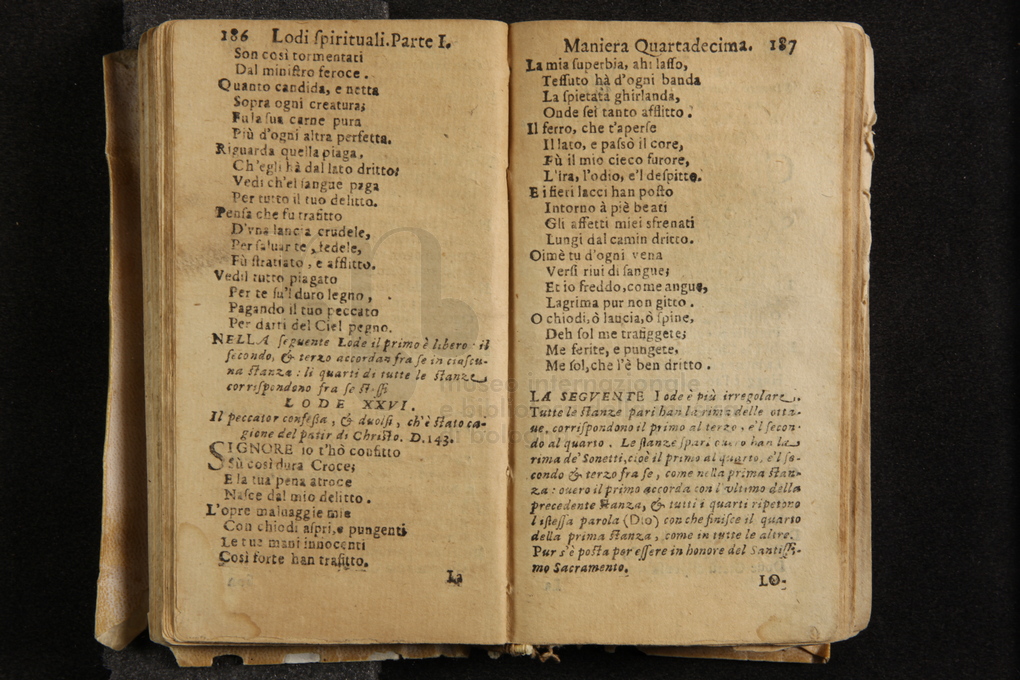 186 Lodi ſpirituali. Parte I.
Son così tormentati
Dal miniſtro feroce.
Quanto candida, e netta
Sopra ogni creatura;
Fu la ſua carne pura
Più d'ogni altra perfetta.
Riguarda quella piaga,
Ch'egli hà dal lato dritto;
Vedi ch'el ſangue paga
Per tutto il tuo delitto.
Penſa che fu trafitto
D'vna lancia crudele,
Per ſaluar te, fedele,
Fù ſtratiato, e afflitto.
Vedil tutto piagato
Per te ſu'l duro legno,
Pagando il tuo peccato
Per darti del Ciel pegno.
NELLA ſeguente Lode il primo è libero: il
ſecondo, & terzo accordan fra ſe in ciaſcu-
na ſtanza: li quarti di tutte le ſtanze
corriſpondono fra ſe ſteſſi
LODE XXVI.
Il peccator confeſſa, & duolſi, ch'è ſtato ca-
gione del patir di Chriſto. D. 143.
SIGNORE io t'hò confitto
Sù così dura Croce;
E la tua pena atroce
Naſce dal mio delitto.
L'opre maluaggie mie
Con chiodi aſpri, e pungenti
Le tue mani innocenti
Così forte han trafitto.
La
Maniera Quartadecima. 187
La mia ſuperbia, ahi laſſo,
Teſſuto hà d'ogni banda
La ſpietata ghirlanda,
Onde ſei tanto afflitto.
Il ferro, che t'aperſe
Il lato, e paſsò il core,
Fù il mio cieco furore,
L'ira, l'odio, e'l deſpitto.
E i fieri lacci han poſto
Intorno à piè beati
Gli affetti miei sfrenati
Lungi dal camin dritto.
Oimè tu d'ogni vena
Verſi riui di ſangue;
Et io freddo, come angue,
Lagrima pur non gitto.
O chiodi, ò lancia, ò ſpine,
Deh ſol me trafiggete;
Me ferite, e pungete,
Me ſol, che l'è ben dritto.
LA SEGVENTE Lode è più irregolare.
Tutte le ſtanze pari han la rima delle otta-
ue, corriſpondono il primo al terzo, e'l ſecon-
do al quarto. Le ſtanze ſpari ouero han la
rima de' Sonetti, cioè il primo al quarto, e'l ſe-
condo & terzo fra ſe, come nella prima ſtan-
za: ouero il primo accorda con l'vltimo della
precedente ſtanza, & tutti i quarti ripetono
l'iſteſſa parola (Dio) con che finiſce il quarto
della prima ſtanza, come in tutte le altre.
Pur s'è poſta per eſſere in honore del Santiſſi-
mo Sacramento.
LO-
museo internazionale
e biblio
di bolo